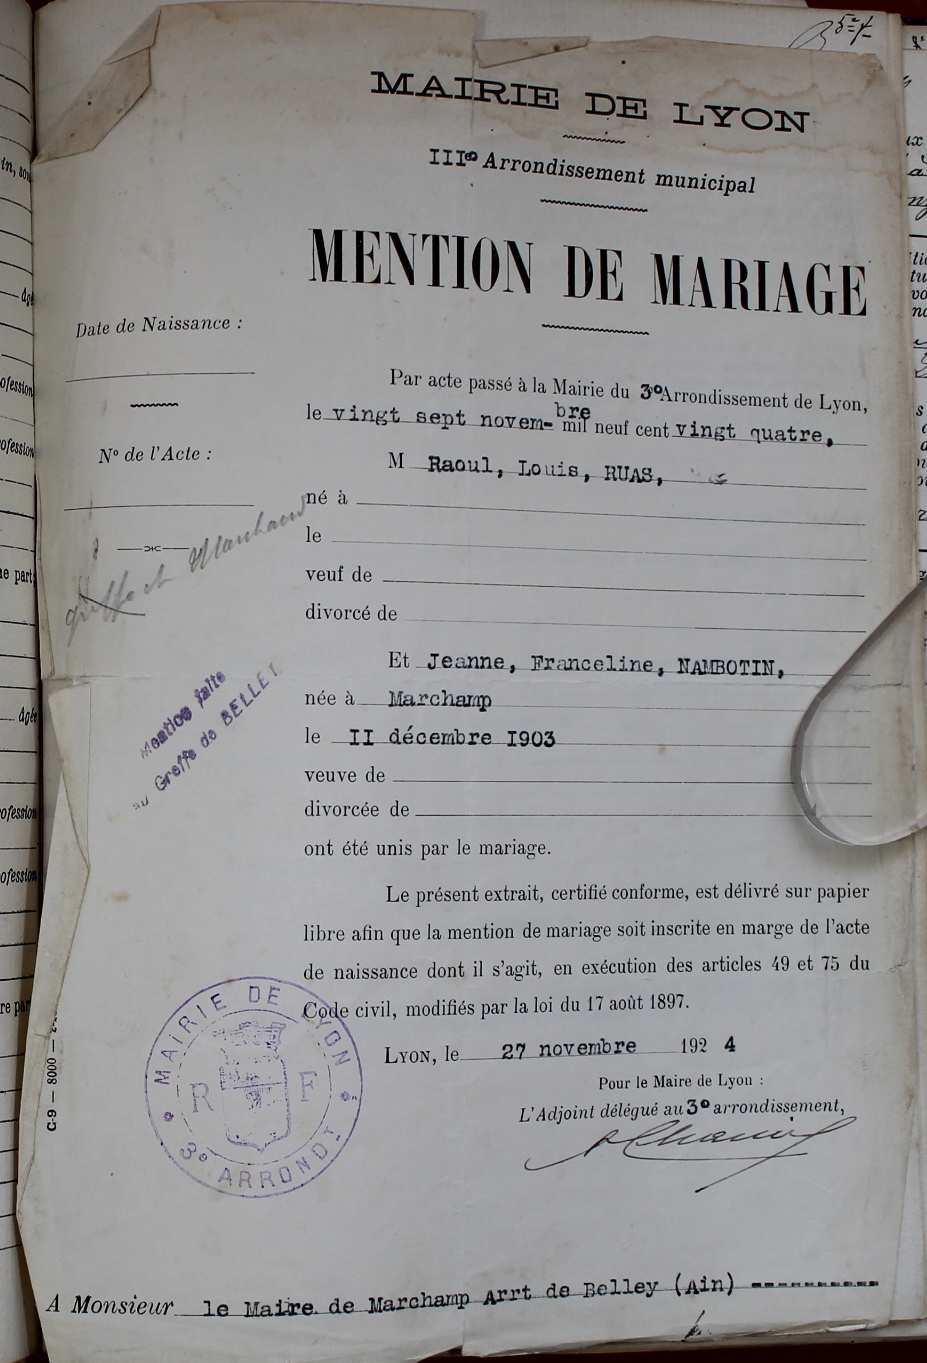 MAIRIE DE LYON
IIIe Arrondissement municipal
MENTION DE MARIAGE
Date de Naissance :
N° de l'Acte :
Greffe et Marchand
Mention faite
au Greffe de BELLEY
Par acte passé à la Mairie du 3° Arrondissement de Lyon,
le vingt sept novem-bre mil neuf cent vingt quatre,
M Raoul, Louis, RUAS,
né à
le
veuf de
divorcé de
Et Jeanne, Franceline, NAMBOTIN,
née à Marchamp
le II décembre I903
veuve de
divorcée de
ont été unis par le mariage.
Le présent extrait, certifié conforme, est délivré sur papier
libre afin que la mention de mariage soit inscrite en marge de l'acte
de naissance dont il s'agit, en exécution des articles 49 et 75 du
Code civil, modifiés par la loi du 17 août 1897.
LYON, le 27 novembre 192 4
Pour le Maire de Lyon :
L'Adjoint délégué au 3° arrondissement,
MAIRIE DE LYON
R F
3° ARRONDT
C-9 — 8000 —
A Monsieur le Maire de Marchamp Arrt de Belley (Ain) ----------